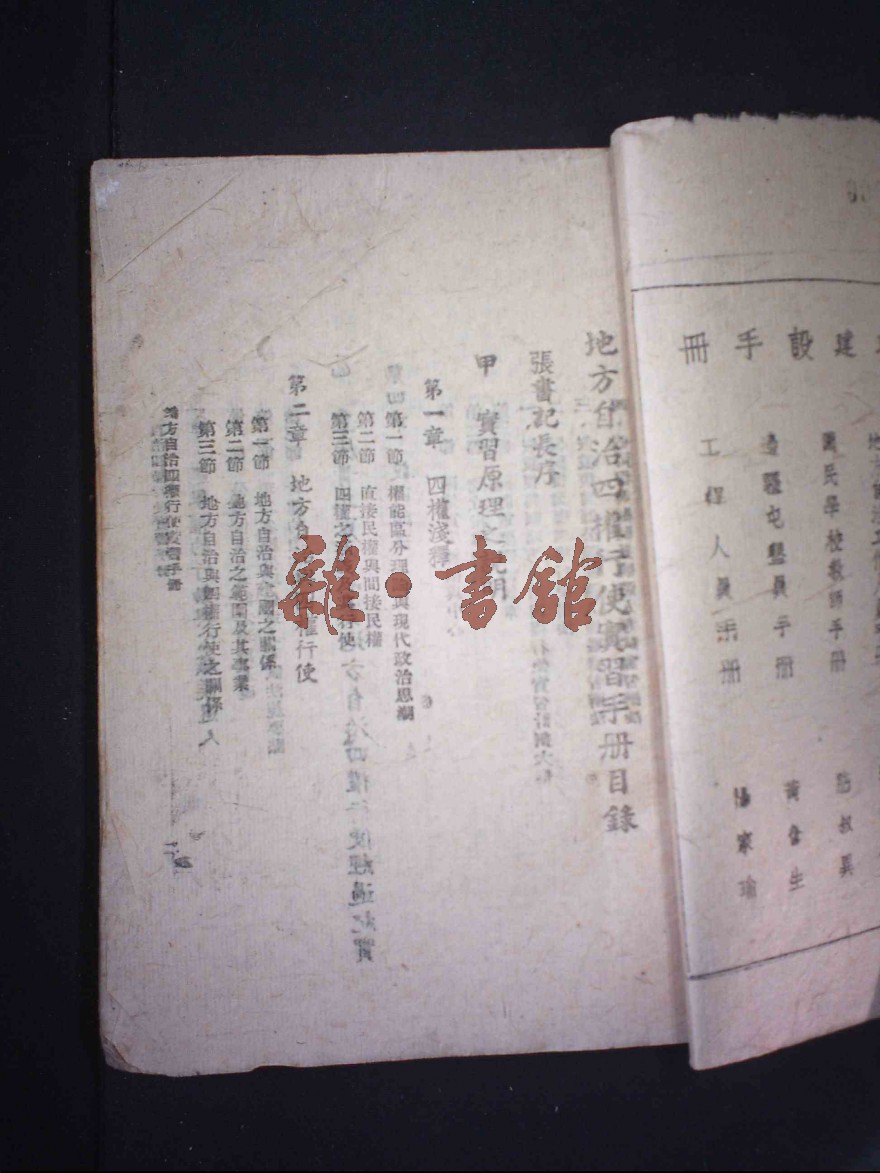 建設手冊
國民學校教師手冊
邊疆屯墾員手冊 黃奮生
工程人員手冊 楊家瑜
地方自治四權行使實習手冊目錄
張書記長序
甲 實習原理之 明
第一章 四權淺釋
第一節 權能區分理 與現代政治思潮
第二節 直接民權與間接民權
第三節 四權之 行使
第二章 地方自 權行使
第一節 地方自治與 國之關係
第二節 地方自治之範圍及其事業
第三節 地方自治與四權行使之關係
地方自治四權行使實習手冊
雜·書館